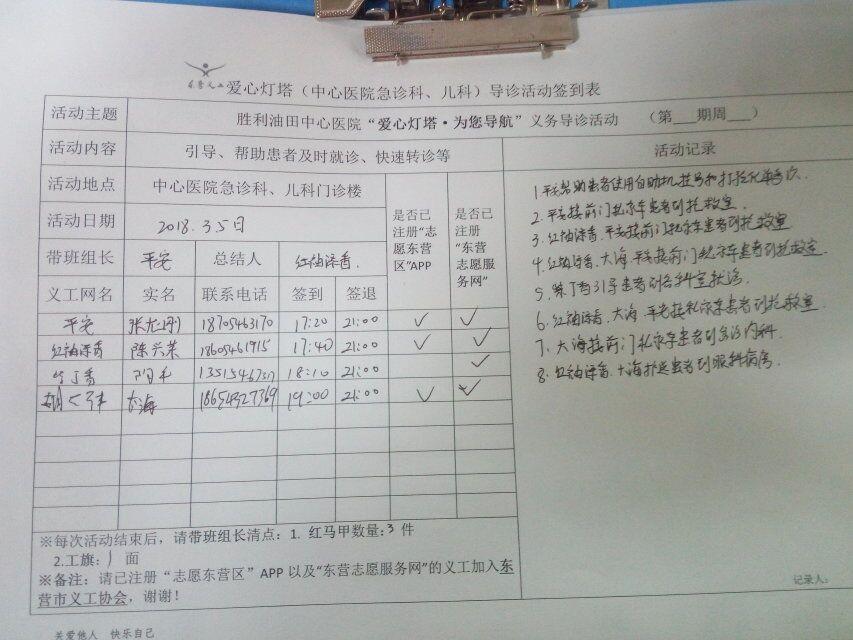 爱心灯塔（中心医院急诊科、儿科）导诊活动签到表
活动主题 胜利油田中心医院“爱心灯塔·为您导航”义务导诊活动 （第___期周___）
活动内容 引导、帮助患者及时就诊、快速转诊等 活动记录
活动地点 中心医院急诊科、儿科门诊楼
活动日期 2018.3.5日
是否已注册“志愿东营区”APP
是否已注册“东营志愿服务网”
带班组长 平安 总结人 红袖添香.
义工网名 实名 联系电话 签到 签退
平安 18705463170 17:20 21:00 ✓ ✓
红袖添香 陈兴荣 18605461915 17:40 21:00 ✓ ✓
18:10 21:00 ✓
大海 19:00 21:00 ✓ ✓
1.平安帮助患者使用自助机挂号和打
2.平安接前门私家车患者到抢救室
3.红袖添香.平安接前门私家车患者到抢救室
4.红袖添香.大海.平安接前门私家车患者到抢救室
5.紫丁香引导患者到各科室就诊
6.红袖添香.大海.平安接私家车患者到抢救室
7.大海接前门私家车患者到急诊内科
8.红袖添香.大海护送患者到眼科病房
※每次活动结束后，请带班组长清点：1. 红马甲数量:3 件
2.工旗:1 面
※备注：请已注册“志愿东营区”APP以及“东营志愿服务网”的义工加入东
营市义工协会，谢谢！
记录人:
关爱他人 快乐自己